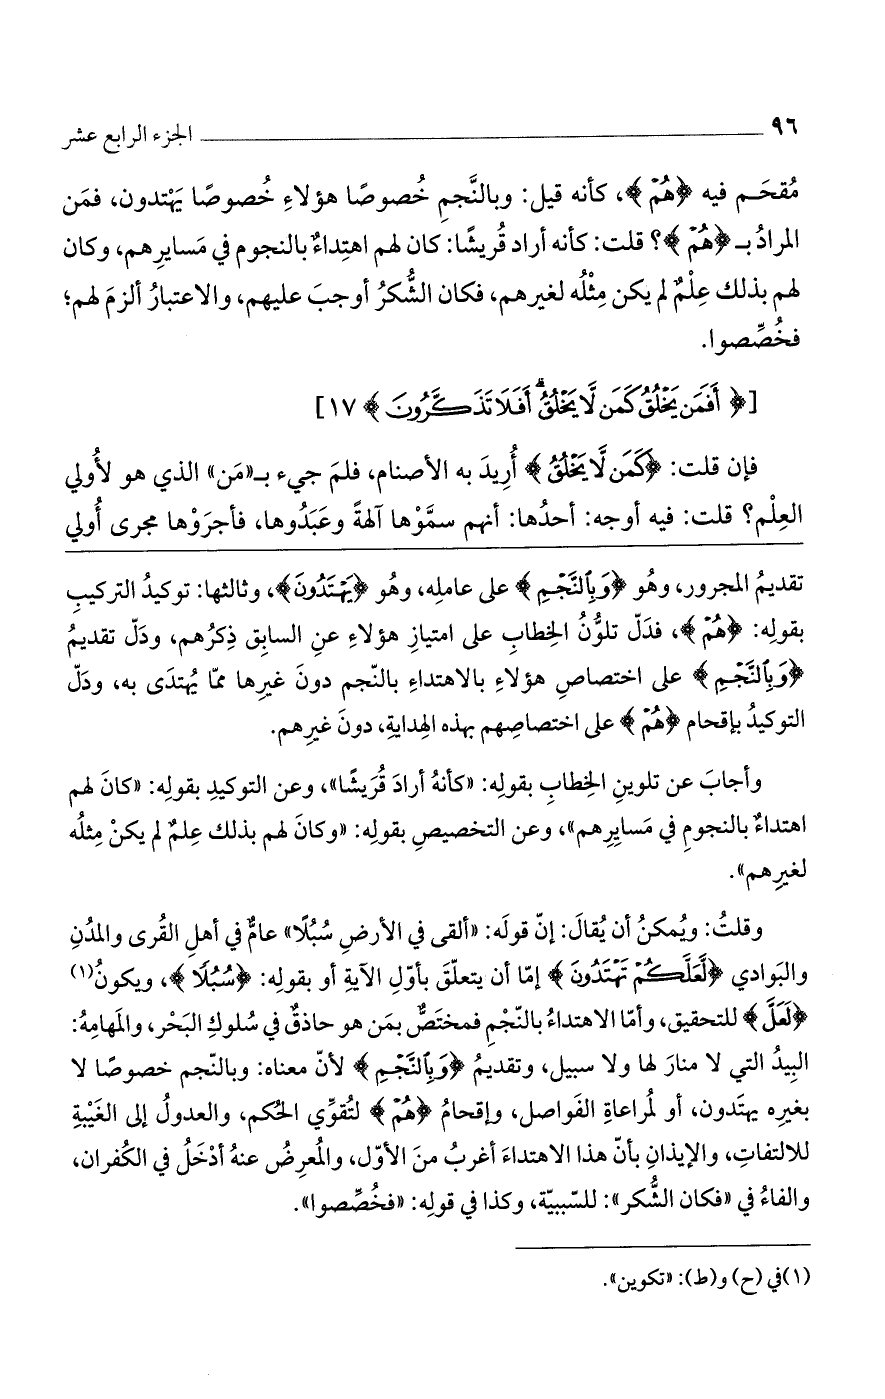 ٩٦ الجزء الرابع عشر
مُقحَم فيه ﴿هُمْ﴾، كأنه قيل: وبالنَّجمِ خُصوصًا هؤلاءِ خُصوصًا يَهْتدون، فمَن
المرادُ بـ﴿هُمْ﴾؟ قلت: كأنه أراد قُريشًا: كان لهم اهتِداءٌ بالنجوم في مَسايرِهم، وكان
لهم بذلك عِلْمٌ لم يكن مِثْلُه لغيرهم، فكان الشُّكرُ أوجبَ عليهم، والاعتبارُ ألزمَ لهم؛
فخُصِّصوا.
[﴿أَفَمَن يَخْلُقُ كَمَن لَّا يَخْلُقُ ۗ أَفَلَا تَذَكَّرُونَ﴾ ١٧]
فإن قلت: ﴿كَمَن لَّا يَخْلُقُ﴾ أُرِيدَ به الأصنام، فلمَ جيء بـ«مَن» الذي هو لأُولي
العِلْم؟ قلت: فيه أوجه: أحدُها: أنهم سمَّوْها آلهةً وعَبَدُوها، فأجرَوْها مجرى أُولي
تقديمُ المجرور، وهُو ﴿وَبِالنَّجْمِ﴾ على عاملِه، وهُو ﴿يَهْتَدُونَ﴾، وثالثها: توكيدُ التركيبِ
بقولِه: ﴿هُمْ﴾، فدَلّ تلوُّنُ الخِطابِ على امتيازِ هؤلاءِ عنِ السابِق ذِكرُهم، ودَلّ تقديمُ
﴿وَبِالنَّجْمِ﴾ على اختصاصِ هؤلاءِ بالاهتداءِ بالنّجم دونَ غيرِها ممّا يُهتدَى به، ودَلّ
التوكيدُ بإقحام ﴿هُمْ﴾ على اختصاصِهم بهذه الهِدايةِ، دونَ غيرِهم.
وأجابَ عن تلوينِ الخِطابِ بقولِه: «كأنهُ أرادَ قُرَيشًا»، وعن التوكيدِ بقولِه: «كانَ لهم
اهتداءٌ بالنجومِ في مَسايِرِهم»، وعن التخصيصِ بقولِه: «وكانَ لهم بذلك عِلمٌ لم يكنْ مِثلُه
لغيرِهم».
وقلتُ: ويُمكنُ أن يُقالَ: إنّ قولَه: «ألقى في الأرضِ سُبُلًا» عامٌّ في أهلِ القُرى والمدُنِ
والبَوادي ﴿لَعَلَّكُمْ تَهْتَدُونَ﴾ إمّا أن يتعلّقَ بأوّلِ الآيةِ أو بقولِه: ﴿سُبُلًا﴾، ويكونُ(١)
﴿لَعَلَّ﴾ للتحقيق، وأمّا الاهتداءُ بالنّجْمِ فمختَصٌّ بمَن هو حاذقٌ في سُلوكِ البَحْر، والمَهامِهُ:
البِيدُ التي لا منارَ لها ولا سبيل، وتقديمُ ﴿وَبِالنَّجْمِ﴾ لأنّ معناه: وبالنّجم خصوصًا لا
بغيرِه يهتَدون، أو لمُراعاةِ الفَواصل، وإقحامُ ﴿هُمْ﴾ لتُقوِّي الحُكم، والعدولُ إلى الغَيْبةِ
للالتفاتِ، والإيذانِ بأنّ هذا الاهتداءَ أغربُ منَ الأوّل، والمُعرِضُ عنهُ أدْخَلُ في الكُفران،
والفاءُ في «فكان الشُّكر»: للسّببيّة، وكذا في قولِه: «فخُصِّصوا».
(١) في (ح) و(ط): «تكوين».